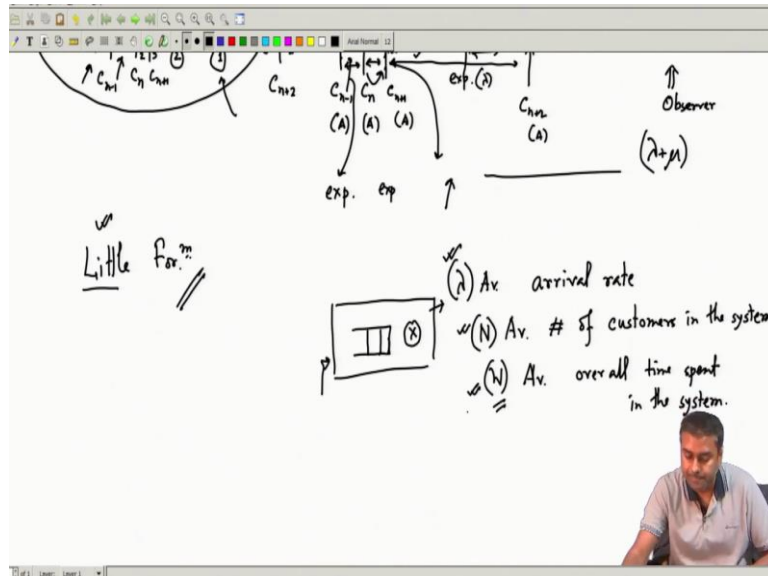 T
Arial Normal 12
C_{n-1} C_n C_{n+1} ② ①
C_{n+2}
C_{n-1} C_n C_{n+1}
(A) (A) (A)
exp. (λ)
C_{n+2}
(A)
Observer
(λ+μ)
exp. exp
Little For.m
(λ) Av. arrival rate
(N) Av. # of customers in the system
(W) Av. overall time spent
in the system.